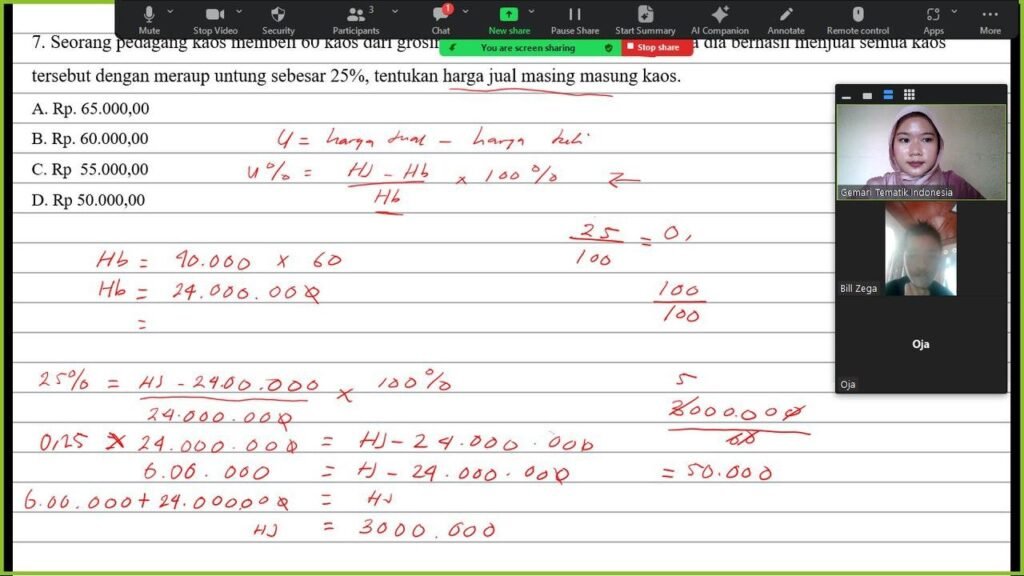 Mute
Stop Video
Security
Participants
3
Chat
1
New share
Pause Share
Start Summary
AI Companion
Annotate
Remote control
Apps
More
You are screen sharing
Stop share
7. Seorang pedagang kaos membeli 60 kaos dari grosir dia berhasil menjual semua kaos
tersebut dengan meraup untung sebesar 25%, tentukan harga jual masing masung kaos.
A. Rp. 65.000,00
B. Rp. 60.000,00
C. Rp 55.000,00
D. Rp 50.000,00
U = harga jual - harga beli
U% = HJ - Hb / Hb × 100%
25 / 100 = 0,
Hb = 40.000 × 60
Hb = 24.000.000
100 / 100
=
25% = HJ - 2400.000 / 24.000.000 × 100%
0,25 × 24.000.000 = HJ - 24.000.000
6.00.000 = HJ - 24.000.000
6.00.000 + 24.000.000 = HJ
HJ = 3000.000
5
3000.000 / 60
= 50.000
Gemari Tematik Indonesia
Bill Zega
Oja
Oja